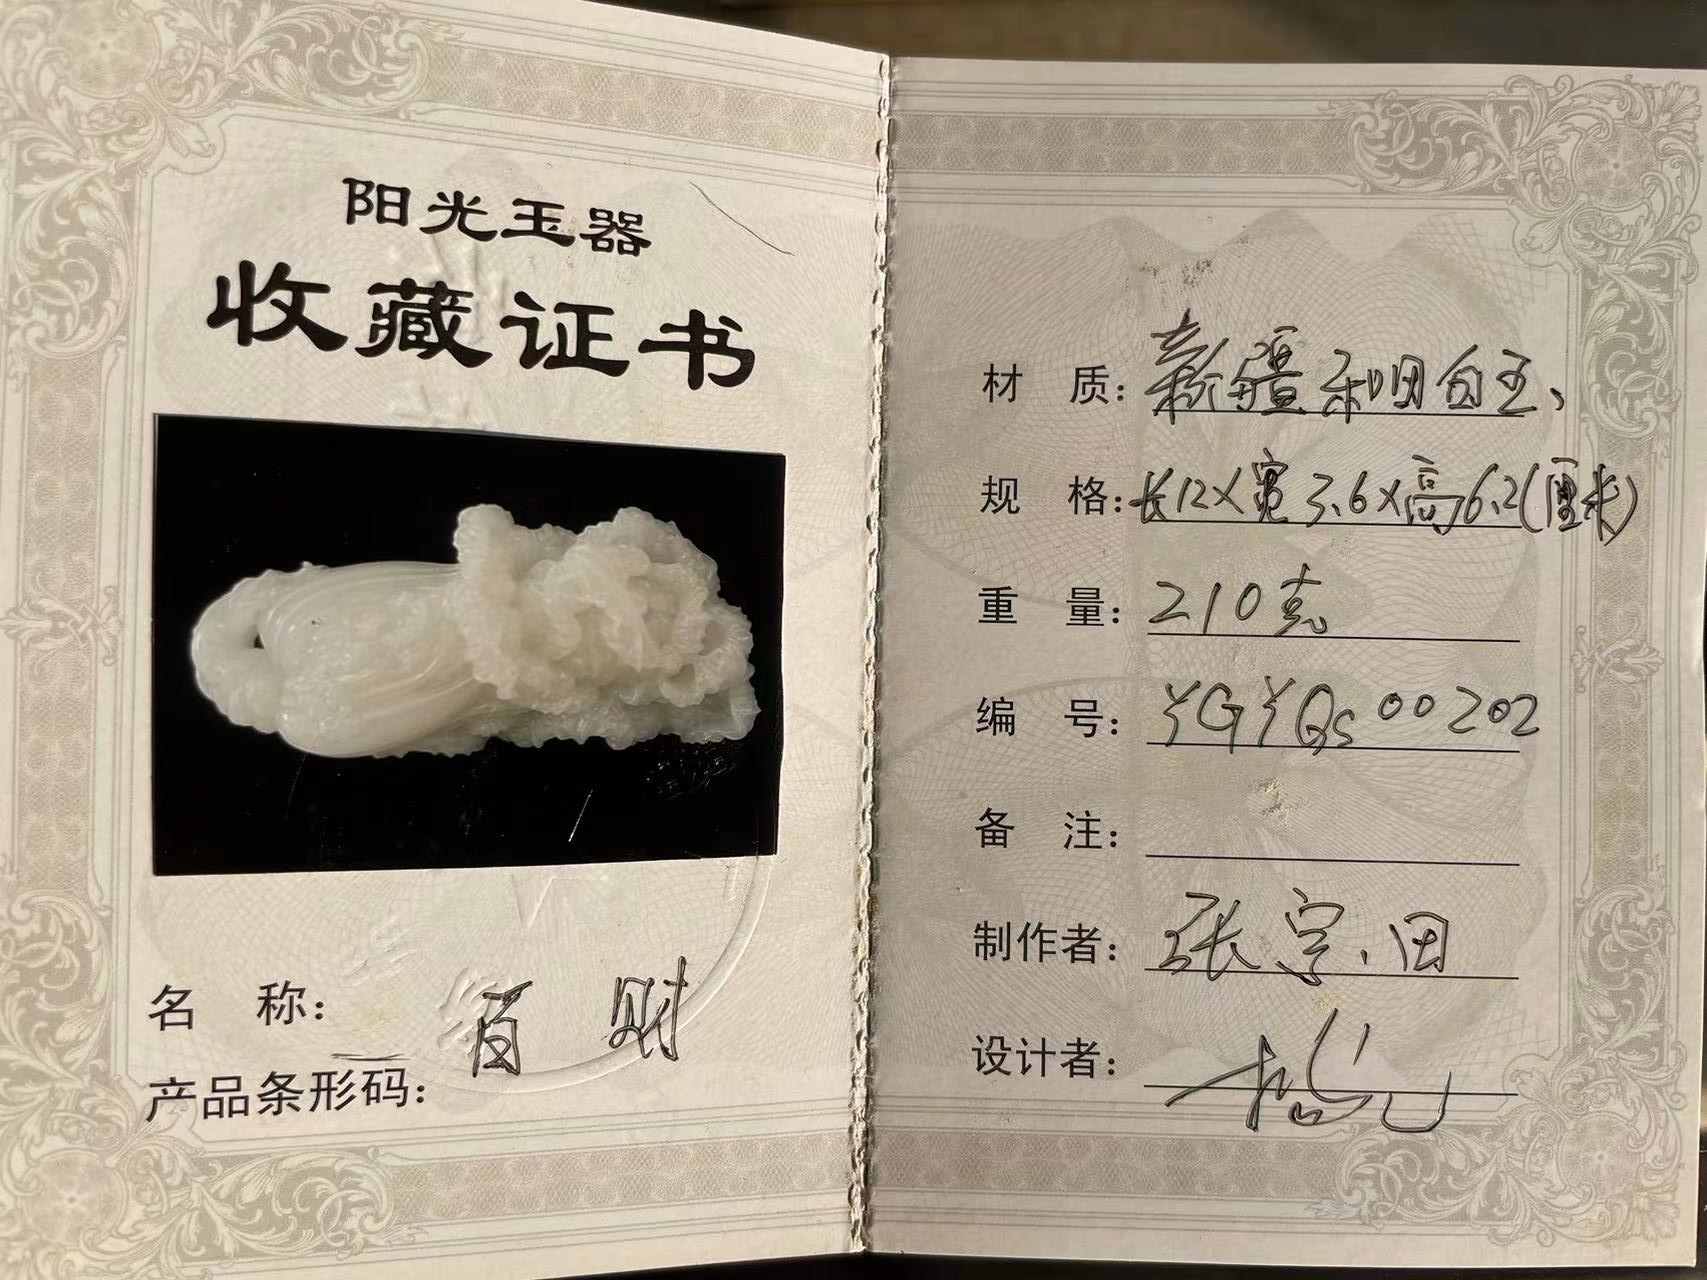 阳光玉器
收藏证书
名 称：百财
产品条形码：
材 质：新疆和田白玉、
规 格：长12×宽3.6×高6.2(厘米)
重 量：210克
编 号：YGYQS00202
备 注：
制作者：张宗田
设计者：